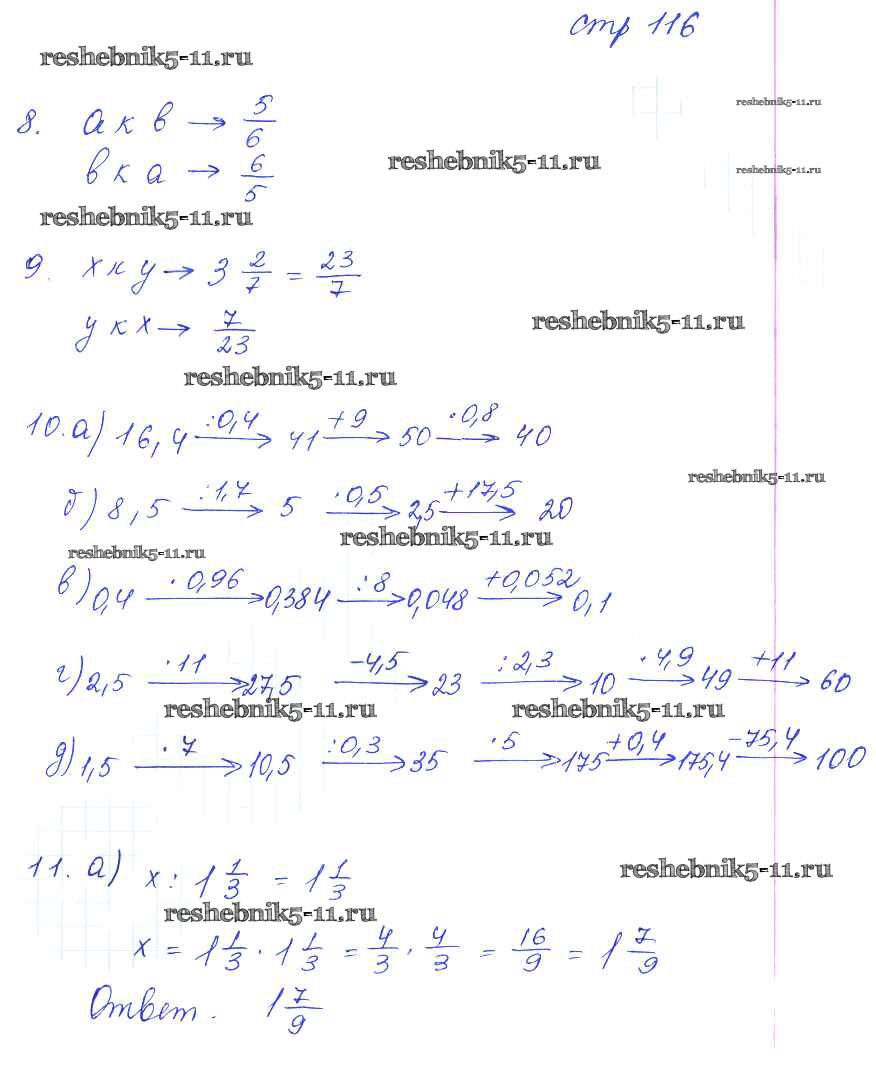 стр 116
reshebnik5-11.ru
reshebnik5-11.ru
8. а к в → 5/6
reshebnik5-11.ru
в к а → 6/5
reshebnik5-11.ru
reshebnik5-11.ru
9. х к у → 3 2/7 = 23/7
у к х → 7/23
reshebnik5-11.ru
reshebnik5-11.ru
10. а) 16,4 :0,4→ 41 +9→ 50 ·0,8→ 40
reshebnik5-11.ru
б) 8,5 :1,7→ 5 ·0,5→ 2,5 +17,5→ 20
reshebnik5-11.ru
reshebnik5-11.ru
в) 0,4 ·0,96→ 0,384 :8→ 0,048 +0,052→ 0,1
г) 2,5 ·11→ 27,5 -4,5→ 23 :2,3→ 10 ·4,9→ 49 +11→ 60
reshebnik5-11.ru reshebnik5-11.ru
д) 1,5 ·7→ 10,5 :0,3→ 35 ·5→ 175 +0,4→ 175,4 -75,4→ 100
11. а) х : 1 1/3 = 1 1/3
reshebnik5-11.ru
reshebnik5-11.ru
х = 1 1/3 · 1 1/3 = 4/3 · 4/3 = 16/9 = 1 7/9
Ответ. 1 7/9